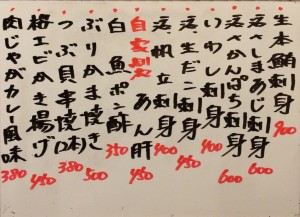 生本鮪刺身 900
活さしまあじ刺身 600
活かんぱち刺身 600
いわし刺身 400
活生だこ刺身 450
活帆立刺身 400
自家製 あん肝 450
白魚ポン酢 350
ぶりかま焼き 500
つぶ貝串焼(1本) 380
桜エビかき揚げ 450
肉じゃがカレー風味 380